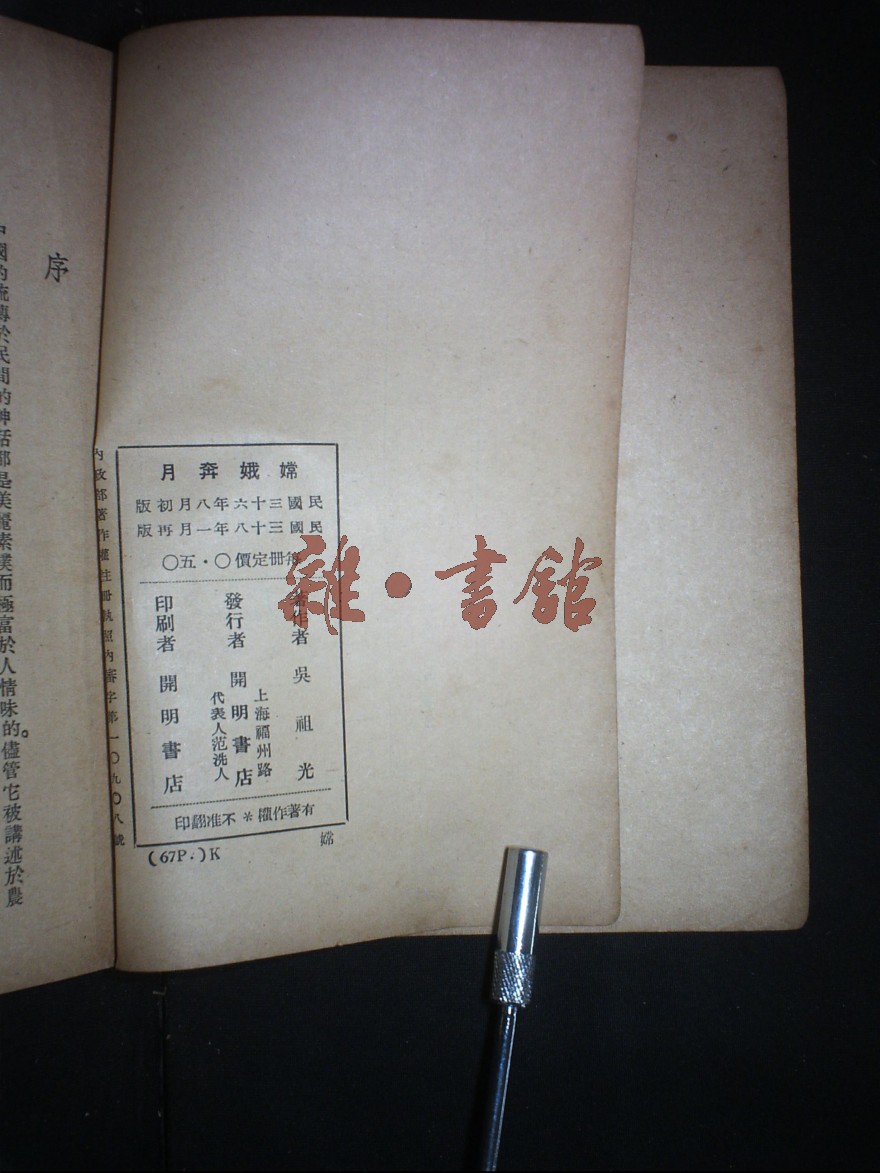 嫦娥奔月
民國三十六年八月初版
民國三十八年一月再版
每冊定價〇·五〇
著作者 吳祖光
上海福州路
發行者 開明書店
代表人范洗人
印刷者 開明書店
有著作權*不准翻印
嫦
(67P.)K
內政部著作權註冊執照內審字第一〇九〇八號
序
中國的流傳於民間的神話都是美麗素樸而極富於人情味的。儘管它被講述於農
雜·書館